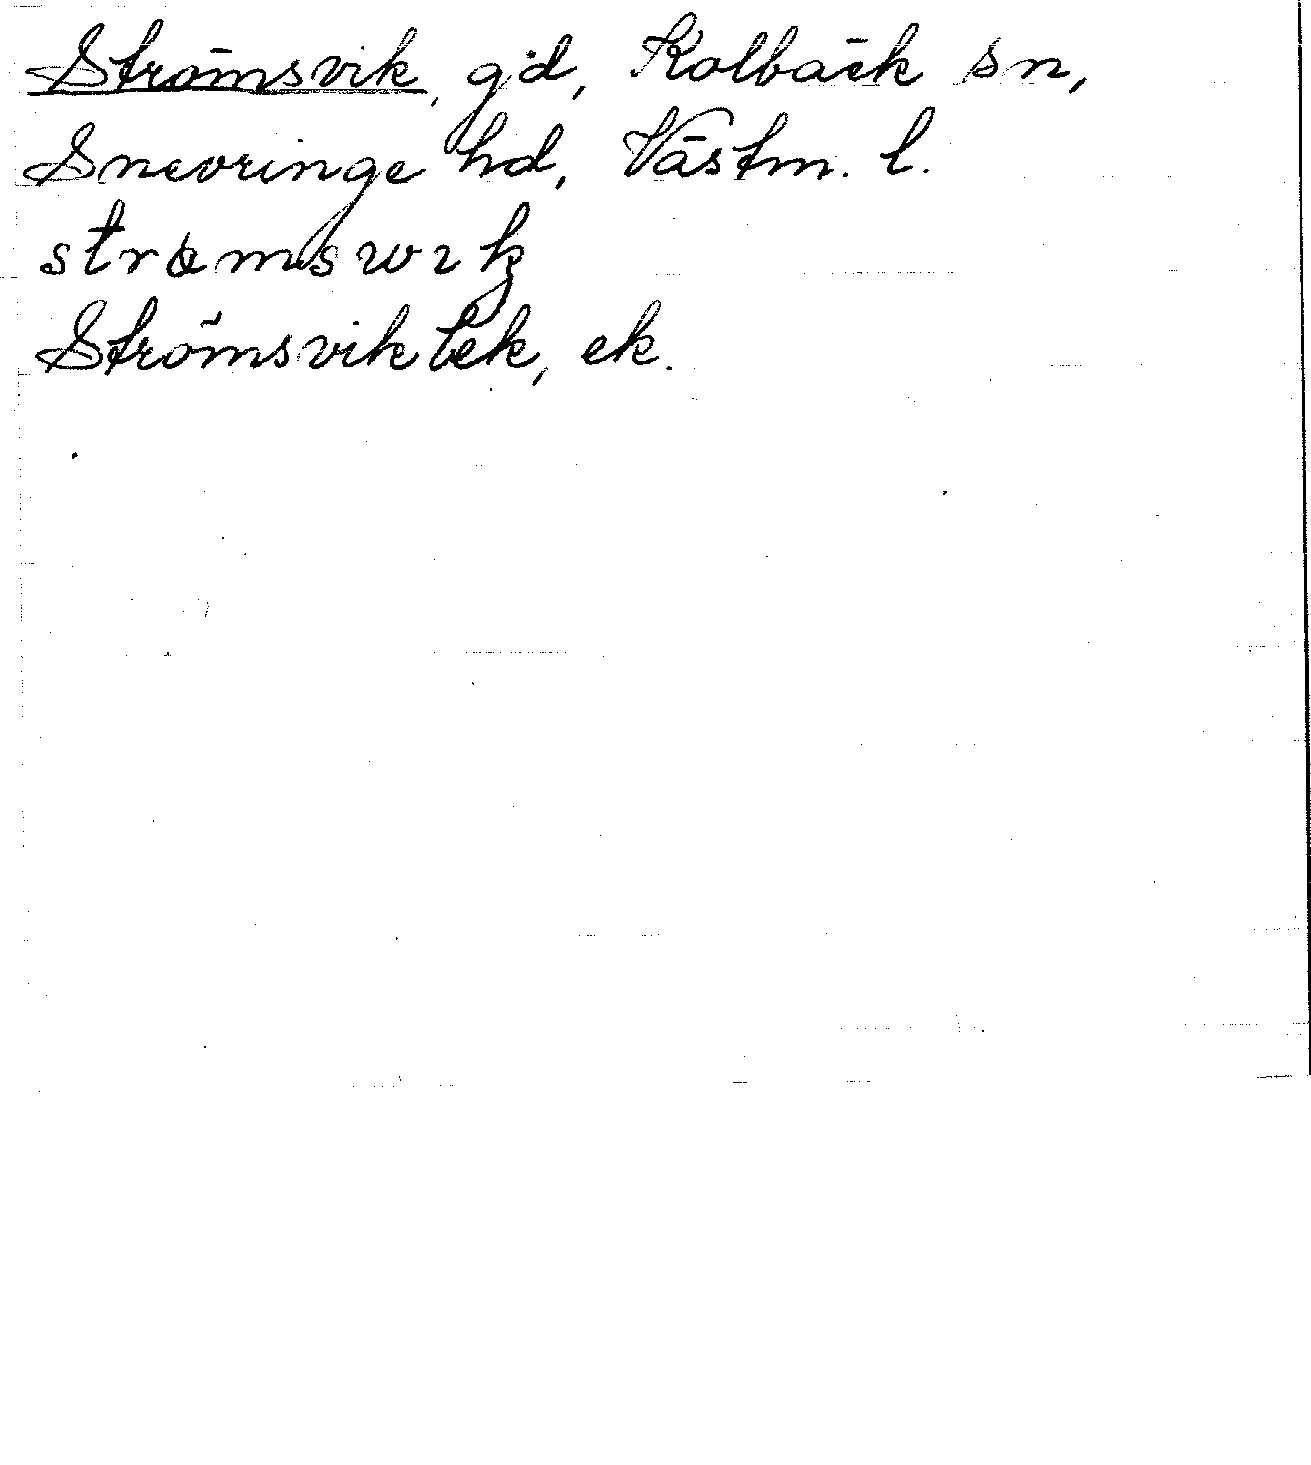 Strömsvik, gd, Kolbäck sn,
Snevringe hd, Västm. l.
Strömsvik bek, ek.